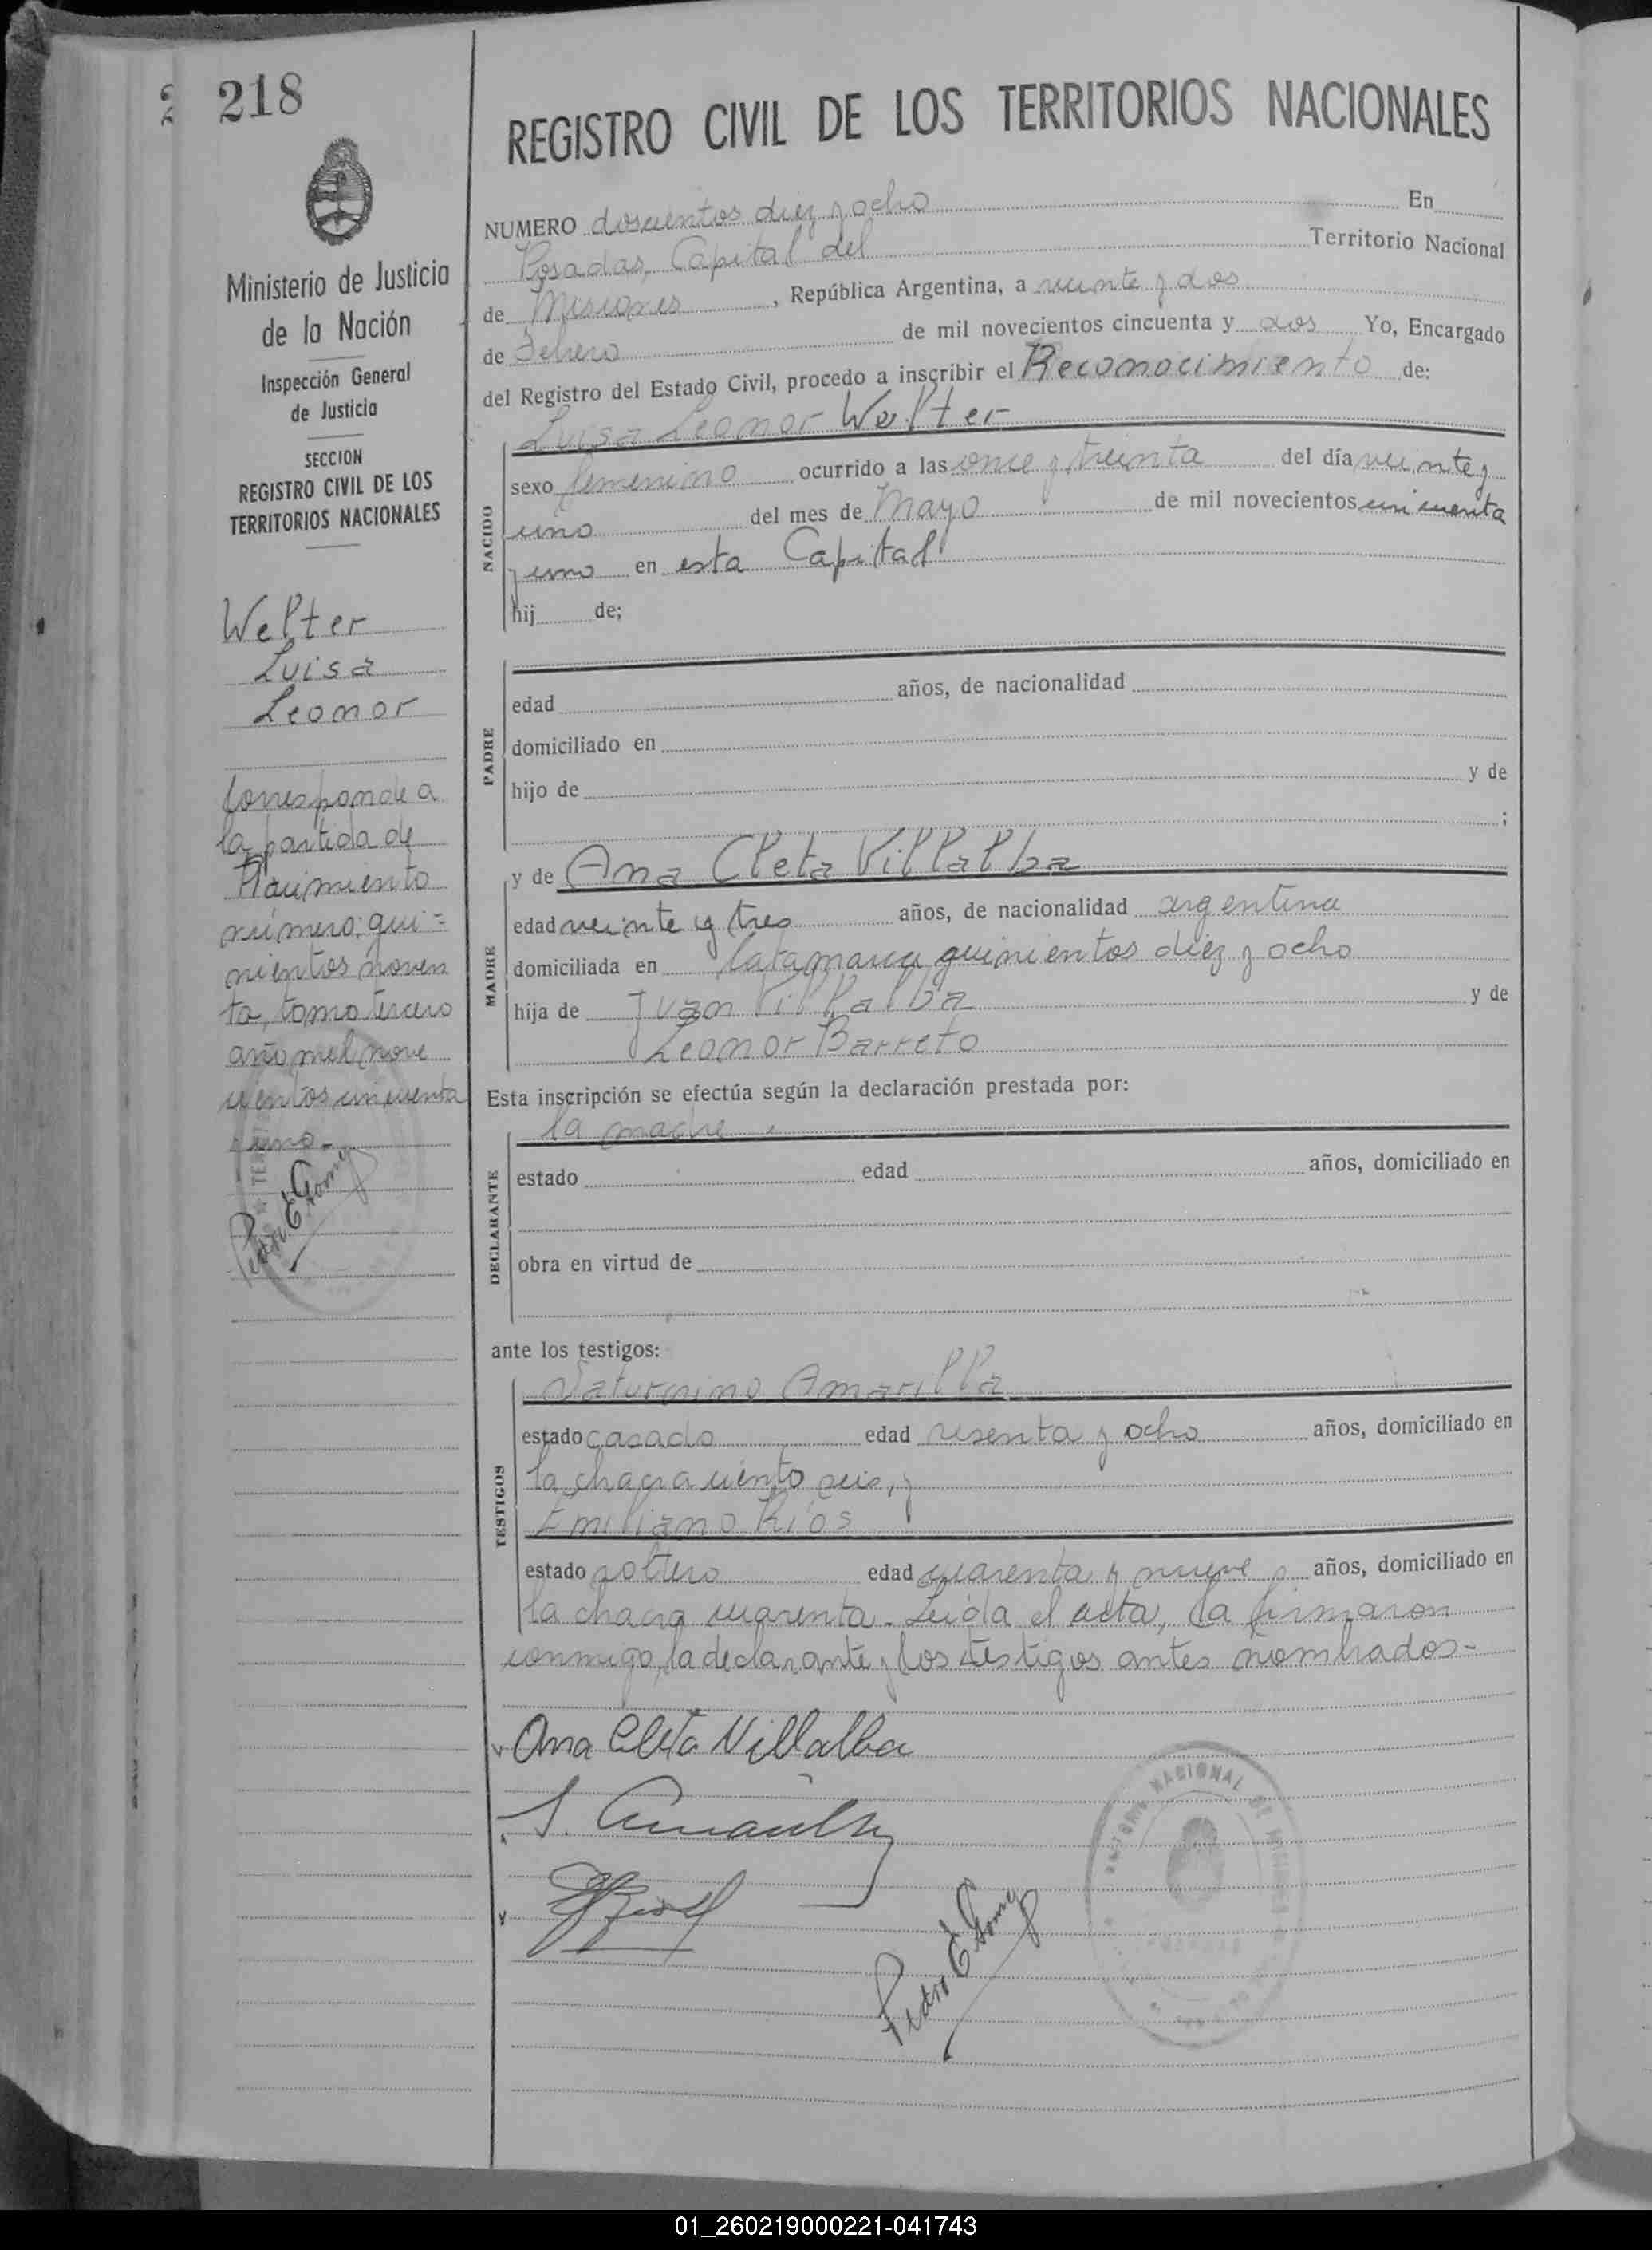 218
Ministerio de Justicia
de la Nación
Inspección General
de Justicia
SECCION
REGISTRO CIVIL DE LOS
TERRITORIOS NACIONALES
Welter
Luisa
Leonor
Corresponde a
la partida de
Nacimiento
número: qui=
nientos noven
ta, tomo tercero
año mil nove
cientos cincuenta
y uno.-
Pedro E. Gomez
REGISTRO CIVIL DE LOS TERRITORIOS NACIONALES
NUMERO doscientos diez y ocho En
Posadas, Capital del Territorio Nacional
de Misiones, República Argentina, a veinte y dos
de Febrero de mil novecientos cincuenta y dos Yo, Encargado
del Registro del Estado Civil, procedo a inscribir el Reconocimiento de:
Luisa Leonor Welter
NACIDO
sexo femenino ocurrido a las once y treinta del día veinte y
uno del mes de Mayo de mil novecientos cincuenta
y uno en esta Capital
hij de;
PADRE
edad años, de nacionalidad
domiciliado en
hijo de y de
;
y de Ana Cleta Villalba
MADRE
edad veinte y tres años, de nacionalidad argentina
domiciliada en Catamarca quinientos diez y ocho
hija de Juan Villalba y de
Leonor Barreto
Esta inscripción se efectúa según la declaración prestada por:
la madre.
DECLARANTE
estado edad años, domiciliado en
obra en virtud de
ante los testigos:
Saturnino Amarilla
TESTIGOS
estado casado edad sesenta y ocho años, domiciliado en
la chacra ciento seis, y
Emiliano Ríos
estado soltero edad cuarenta y nueve años, domiciliado en
la chacra cuarenta. Leída el acta, la firmaron
conmigo, la declarante y los testigos antes nombrados-
Ana Cleta Villalba
S. Amarilla
Pedro E. Gomez
TERRITORIO NACIONAL DE MISIONES
01_260219000221-041743